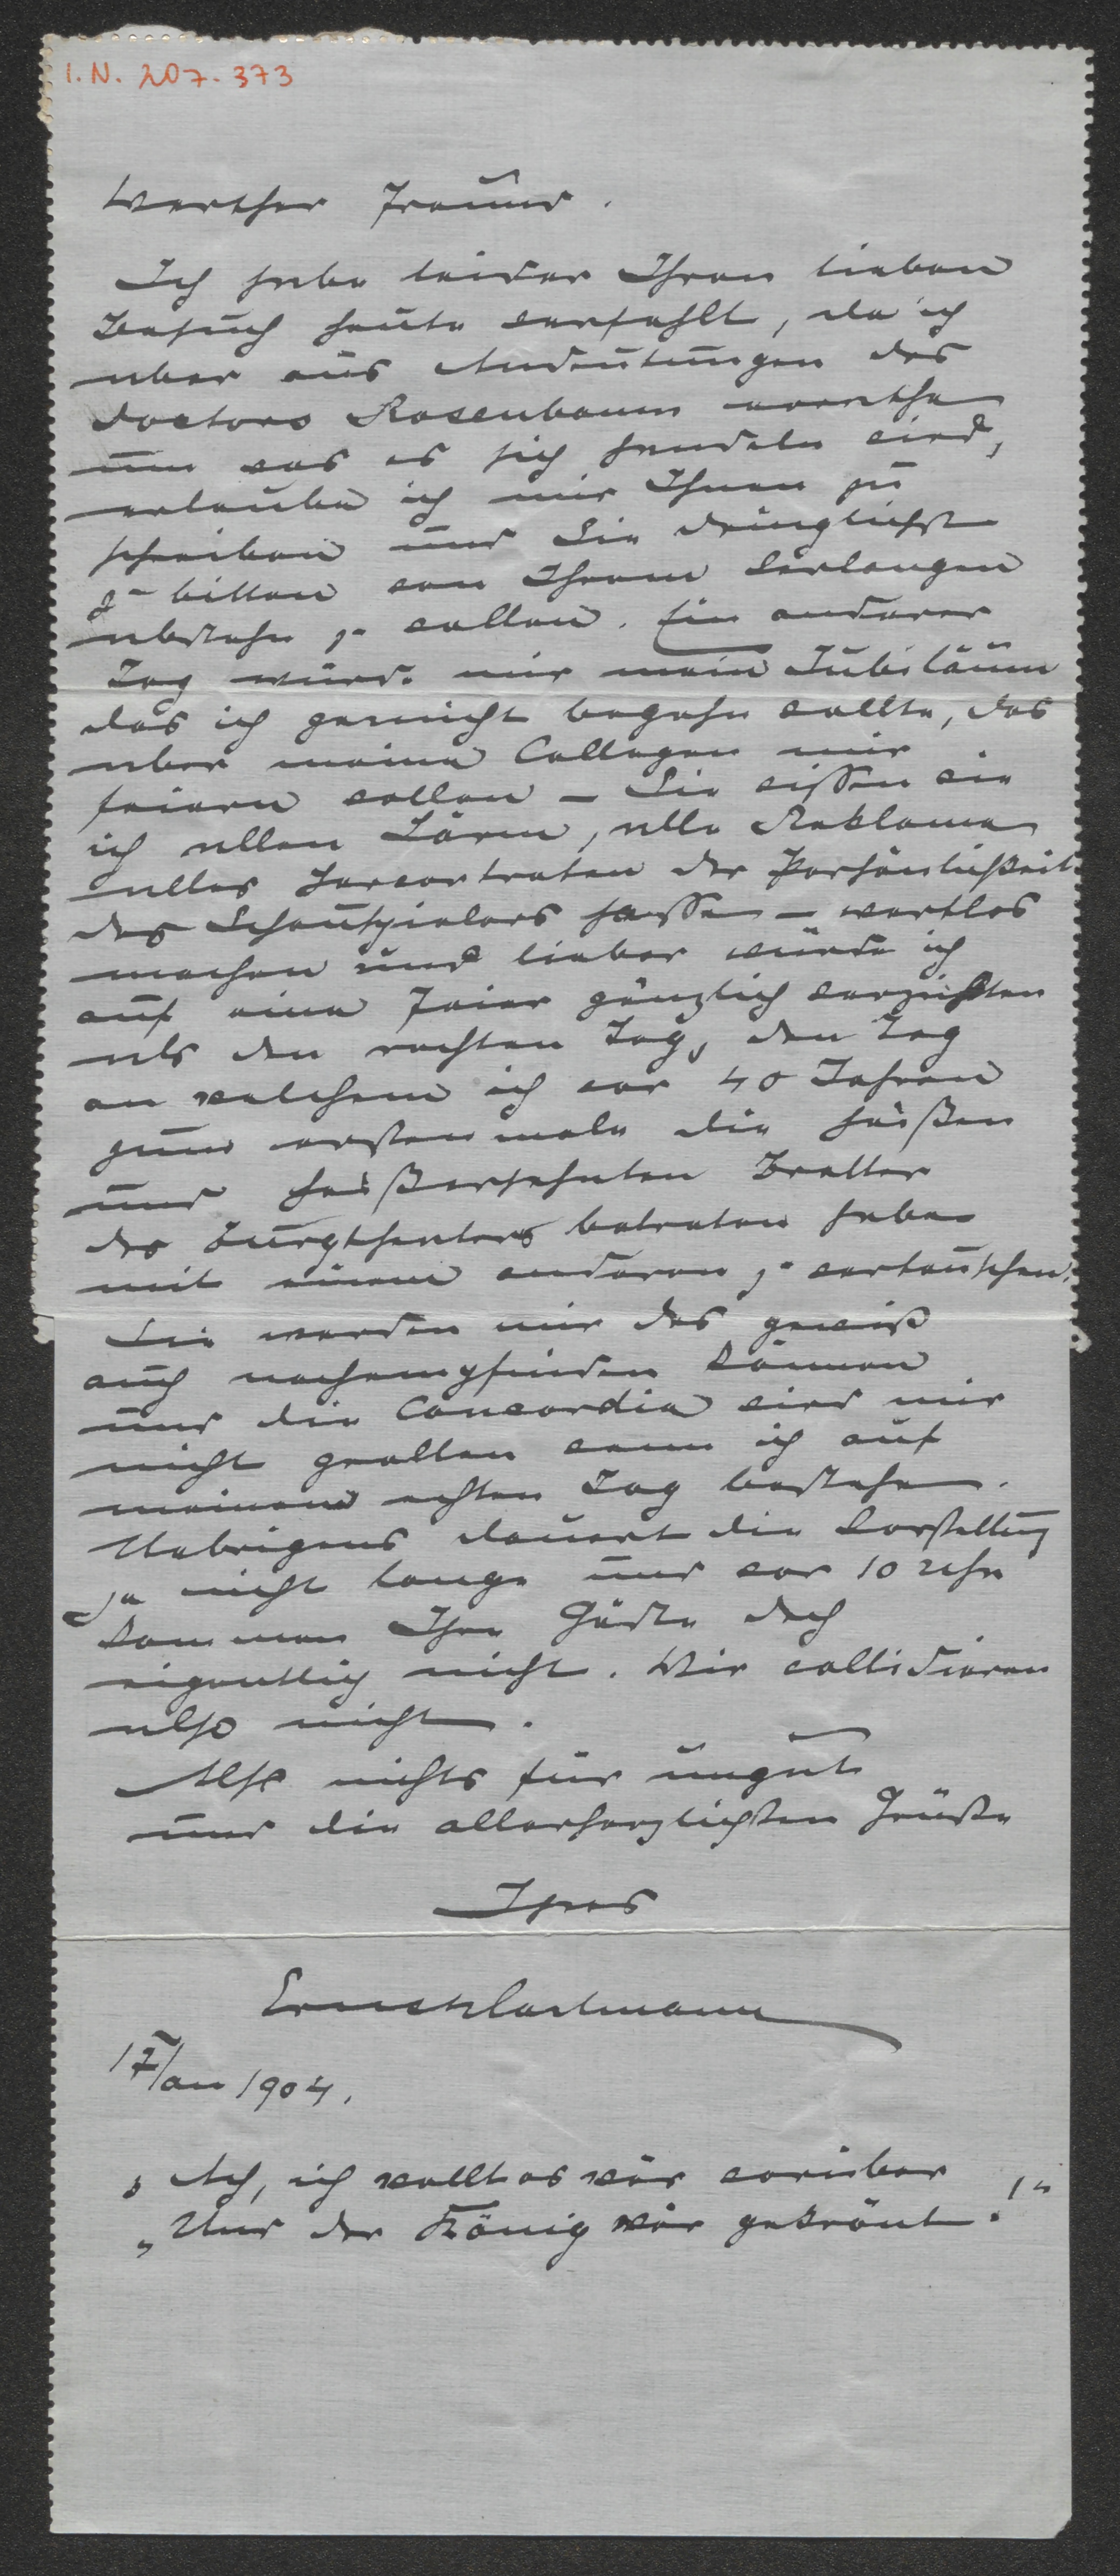 I.N. 207.373
Werther Freund.
Ich habe leider Ihren lieben
Besuch heute verfehlt, da ich
aber aus Andeutungen des
Doctors Rosenbaum errathe
um was es sich handeln wird,
erlaube ich mir Ihnen zu
schreiben und Sie dringlichst
zu bitten von Ihrem Verlangen
abstehn zu wollen. Ein anderer
Tag würde mir mein Jubiläum
das ich garnicht begehn wollte, das
aber meine Collegen mir
feiern wollen – Sie wissen wie
ich allen Lärm, alle Reklame
alles Hervortreten der Persönlichkeit
des Schauspielers hasse – wertlos
machen und lieber würde ich
auf eine Feier gänzlich verzichten
als den rechten Tag, den Tag
an welchem ich vor 40 Jahren
zum erstenmale die heißen
und heißersehnten Bretter
des Burgtheaters betreten habe
mit einem anderen zu vertauschen.
Sie werden mir das gewiß
auch nachempfinden können
und die Concordia wird mir
nicht grollen wenn ich auf
meinem echten Tag bestehe.
Uebrigens dauert die Vorstellung
ja nicht lange und vor 10 Uhr
kommen Ihre Gäste doch
eigentlich nicht. Wir collidieren
also nicht.
Also nichts für ungut
und die allerherzlichsten Grüße
Ihres
Ernst Hartmann
17/Jan 1904.
„Ach, ich wollt es wär vorüber
„Und der König wär gekrönt!"